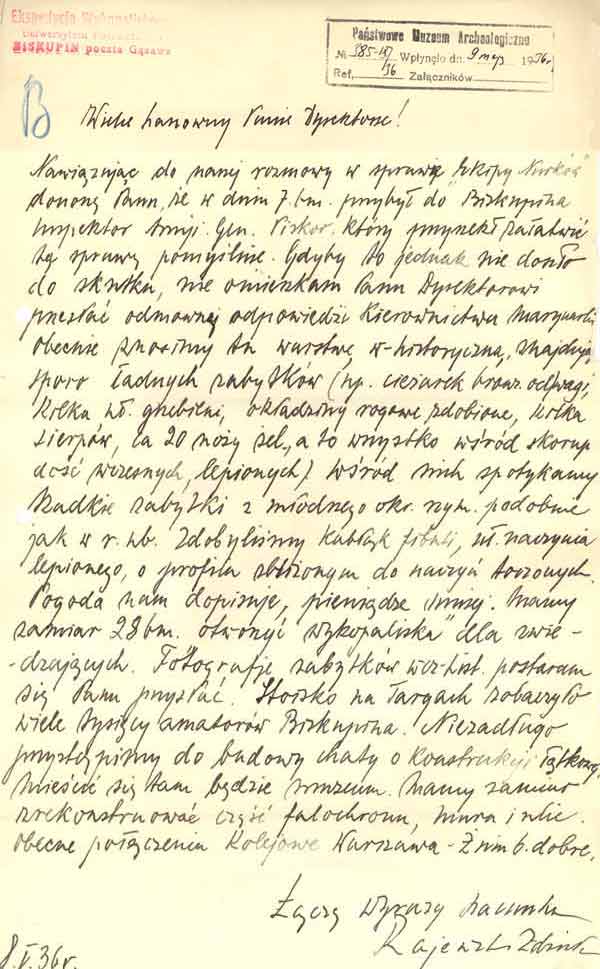 Ekspedycja Wykopaliskowa
Uniwersytetu
BISKUPIN poczta Gąsawa
Państwowe Muzeum Archeologiczne
№ 385 Wpłynęło dn. 9 maja 1936 r
Ref. /36 Załączników
B
Wielce Szanowny Panie Dyrektorze!
Nawiązując do naszej rozmowy w sprawie "Ekipy Nurków"
donoszę Panu, że w dniu 7.bm. przybył do Biskupina
Inspektor Armji. Gen. Piskor. który przyrzekł załatwić
tą sprawę pomyślnie. Gdyby to jednak nie doszło
do skutku, nie omieszkam Panu Dyrektorowi
przesłać odmownej odpowiedzi Kierownictwa Marynarki
Obecnie znosimy tu warstwę w-historyczną, znajdując
sporo ładnych zabytków (np. ciężarek bronz. od wagi,
kilka uł. grzebieni, okładziny rogowe zdobione, kilka
sierpów, ca 20 noży żel., a to wszystko wśród skorup
dość wczesnych, lepionych) Wśród nich spotykamy
rzadkie zabytki z młodszego okr. rzym. podobnie
jak w r. ub. Zdobyliśmy kabłąk fibuli, uł. naczynia
lepionego, o profilu zbliżonym do naczyń toczonych.
Pogoda nam dopisuje, pieniądze mniej. Mamy
zamiar 28 bm. otworzyć "wykopaliska" dla zwie-
-dzających. Fotografje zabytków wcz-hist. postaram
się Panu przysłać. Stoisko na Targach zobaczyło
wiele tysięcy amatorów Biskupina. Niezadługo
przystąpimy do budowy chaty o konstrukcji łątkowej,
mieścić się tam będzie muzeum. Mamy zamiar
zrekonstruować część falochronu, muru i ulic.
Obecne połączenia kolejowe Warszawa - Żnin b. dobre.
Łączę wyrazy szacunku
Rajewski Zdzisł
8.V.36 r.